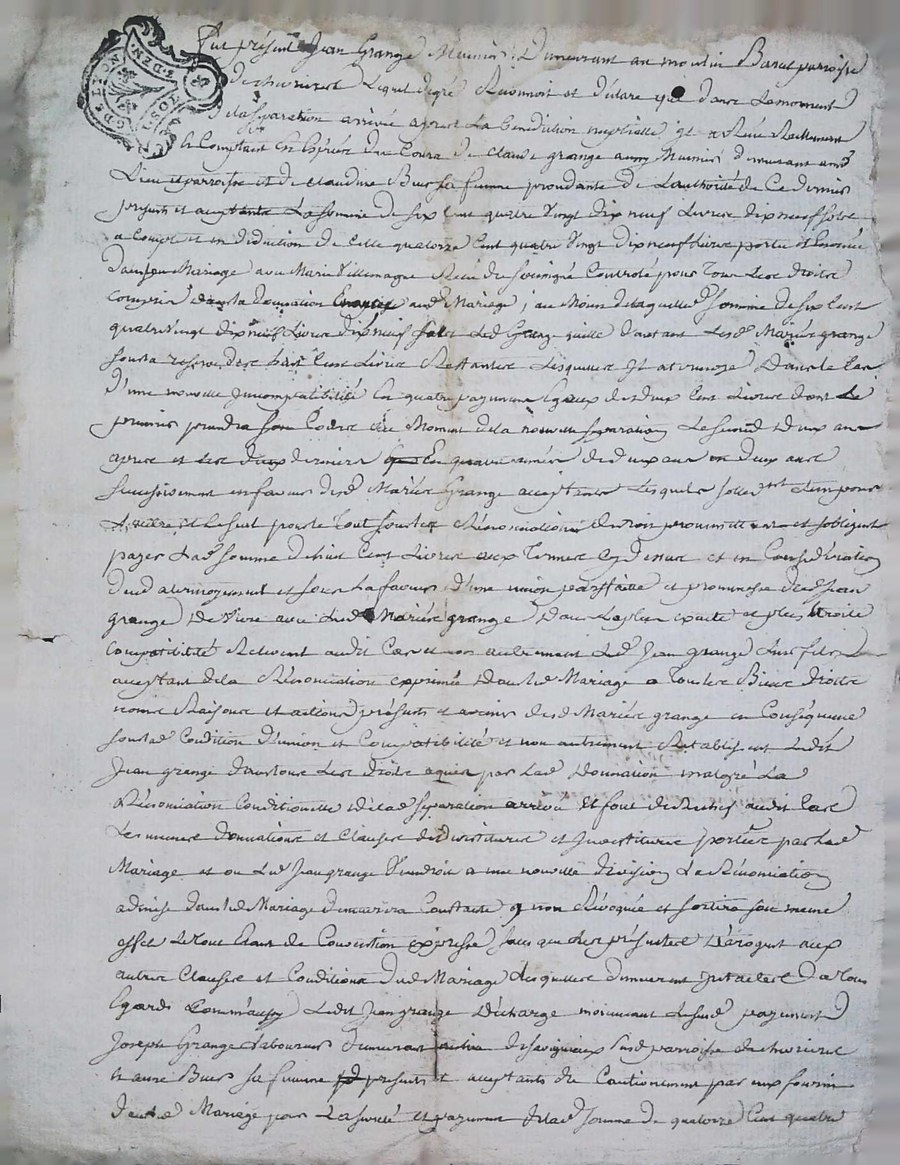 Fut présent Jean Grange Munier Demeurant au moulin Barut parroisse
de chevrieres Lequel de gré Reconnoit et declare que dans Le moment
De la separation arrivée apres La benediction nuptialle il a Reçu Reellement
et Comptant En Espèces du Cours de claude grange aussy Munier demeurant aud
Lieu et parroisse et de claudine Bus sa femme procedante de L'authorité de Ce dernier
presents et acceptants La somme de six Cent quatre Vingt dix neuf Livres dix neuf sols
a Compte et en deduction de Celle quatorze Cent quatre Vingt dix neuf Livres portée et Enoncée
Dans son Mariage avec Marie Villemagne Reçu du soussigné Controlé pour Tous Les Droits
Compris dans La Donnation aud Mariage ; au Moyen de laquelle somme de six Cent
quatre Vingt dix neuf Livres dix neuf sols Led Grange quitte d'autant Lesd Mariés grange
sous La reserve des huit Cent Livres Restantes Lesquelles dans le Cas
D'une nouvelle Incompatibilité En quatre payements Egaux de deux Cent Livres dont Le
premier prendra son Cours au Moment de la nouvelle separation Le second deux ans
apres et Les deux derniers de deux ans en deux ans
successivement en faveur desd Mariés Grange acceptants Lesquels un pour
L'autre et Le seul pour le Tout sous Les Renonciations de droit promettent et s'obligent
payer Lad somme de huit Cent Livres aux Termes cy dessus et en Consideration
Dud atermoyement et sous La faveur d'une union parfaitte et promesse dud Jean
grange De Vivre avec Lesd Mariés grange dans La plus exacte et plus Etroite
Compatibilité Relevent audit Cas et non autrement Led Jean grange Leur fils
acceptant de la Renonciation exprimée dans led Mariage a Tous les Biens Droits
noms Raisons et actions presents et avenir desd Mariés grange en Consequence
sous lad Condition D'union et Compatibilité et non autrement Retablissent Ledit
Jean grange dans tous Les droits aquis par Lad Donnation malgré La
Renonciation Conditionelle de la separation arrivée Et font de audit Cas
Les memes donnations et Clauses de Divestitures et Investitures portées par Led
Mariage et ou Led Jean grange Viendroit a une nouvelle division La Renonciation
admise dans led Mariage demeurera Constante non Revoquée et sortira son meme
effet Le tout Etant de Convention expresse sans que Les presentes Derogent aux
autres Clauses et Conditions dud Mariage Lesquelles demeurent Intactes a tous
Egards Comm'aussy Ledit Jean grange decharge moyennant Le susd payement
Joseph Grange Laboureur demeurant de savigneux susd parroisse de chevrieres
et anne Bus sa femme presents et acceptants du Cautionement par eux fourni
Dans led Mariage pour La sureté et payement de lad somme de quatorze Cent quatre